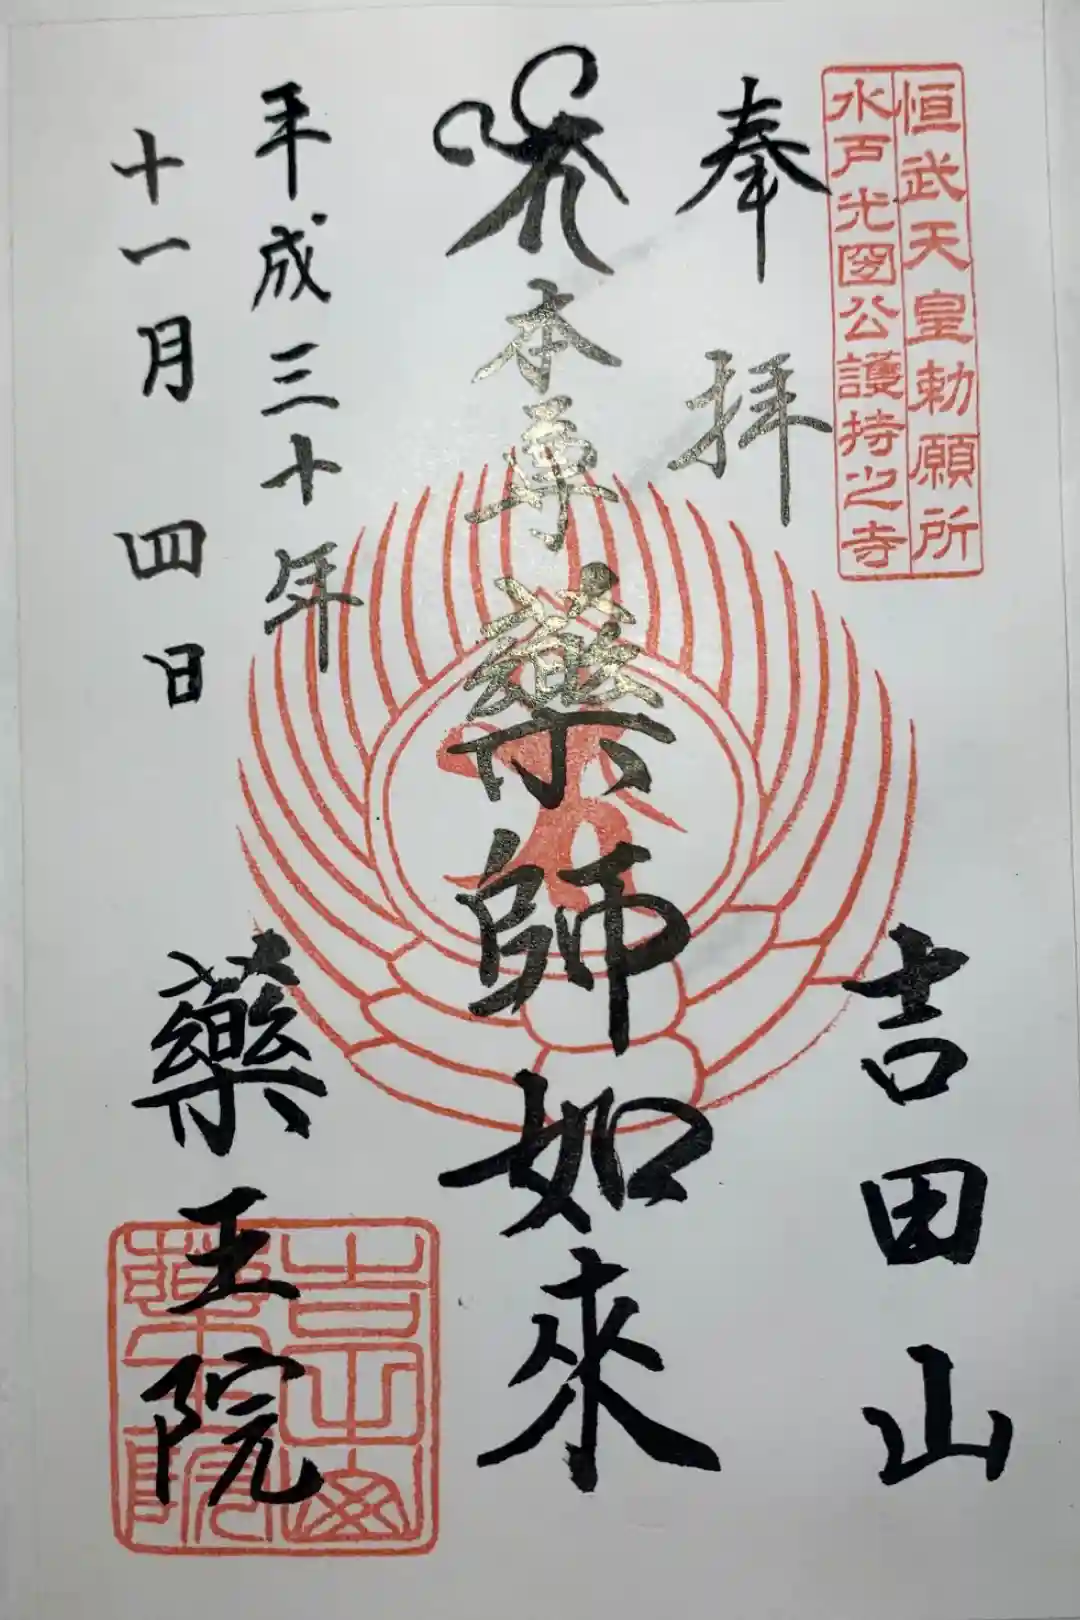 恒武天皇勅願所
水戸光圀公護持之寺
奉拝
吉田山
本尊
薬師如來
平成三十年
十一月四日
藥王院